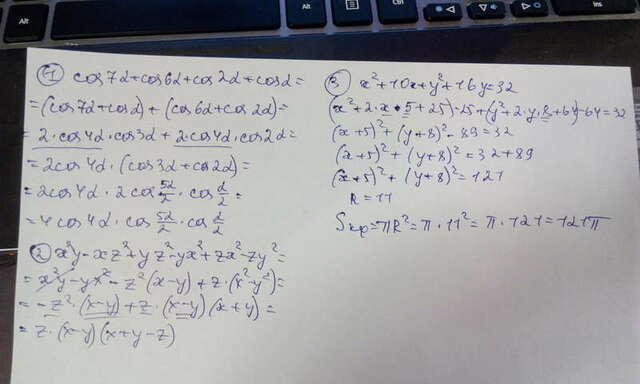 1 cos7α+cos6α+cos2α+cosα=
=(cos7α+cosα)+(cos6α+cos2α)=
=2·cos4α·cos3α+2cos4α·cos2α=
=2cos4α·(cos3α+cos2α)=
=2cos4α·2cos 5α/2·cos α/2=
=4cos4α·cos 5α/2·cos α/2
2 x²y-xz²+yz²-yx²+zx²-zy²=
=x²y-yx²-z²(x-y)+z·(x²-y²)=
=-z²·(x-y)+z·(x-y)(x+y)=
=z·(x-y)(x+y-z)
3 x²+10x+y²+16y=32
(x²+2·x·5+25)-25+(y²+2·y·8+64)-64=32
(x+5)²+(y+8)²-89=32
(x+5)²+(y+8)²=32+89
(x+5)²+(y+8)²=121
R=11
Sкр=πR²=π·11²=π·121=121π